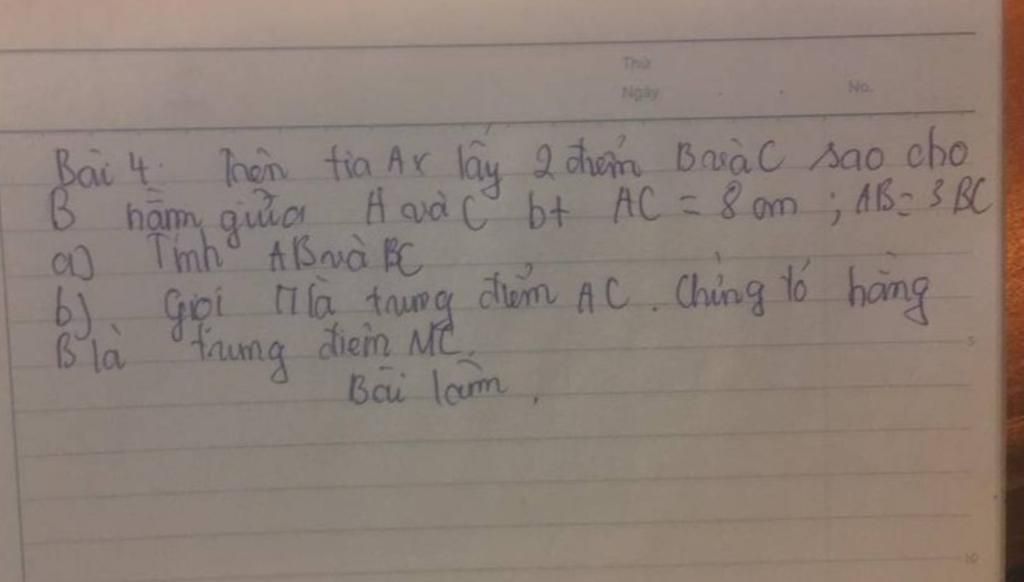 Thứ
Ngày
No.
Bài 4. Trên tia Ax lấy 2 điểm B và C sao cho
B nằm giữa A và C bt AC = 8 cm ; AB = 3 BC
a) Tính AB và BC
b) Gọi M là trung điểm AC. Chứng tỏ hằng
B là trung điểm MC.
5
Bài làm.
10